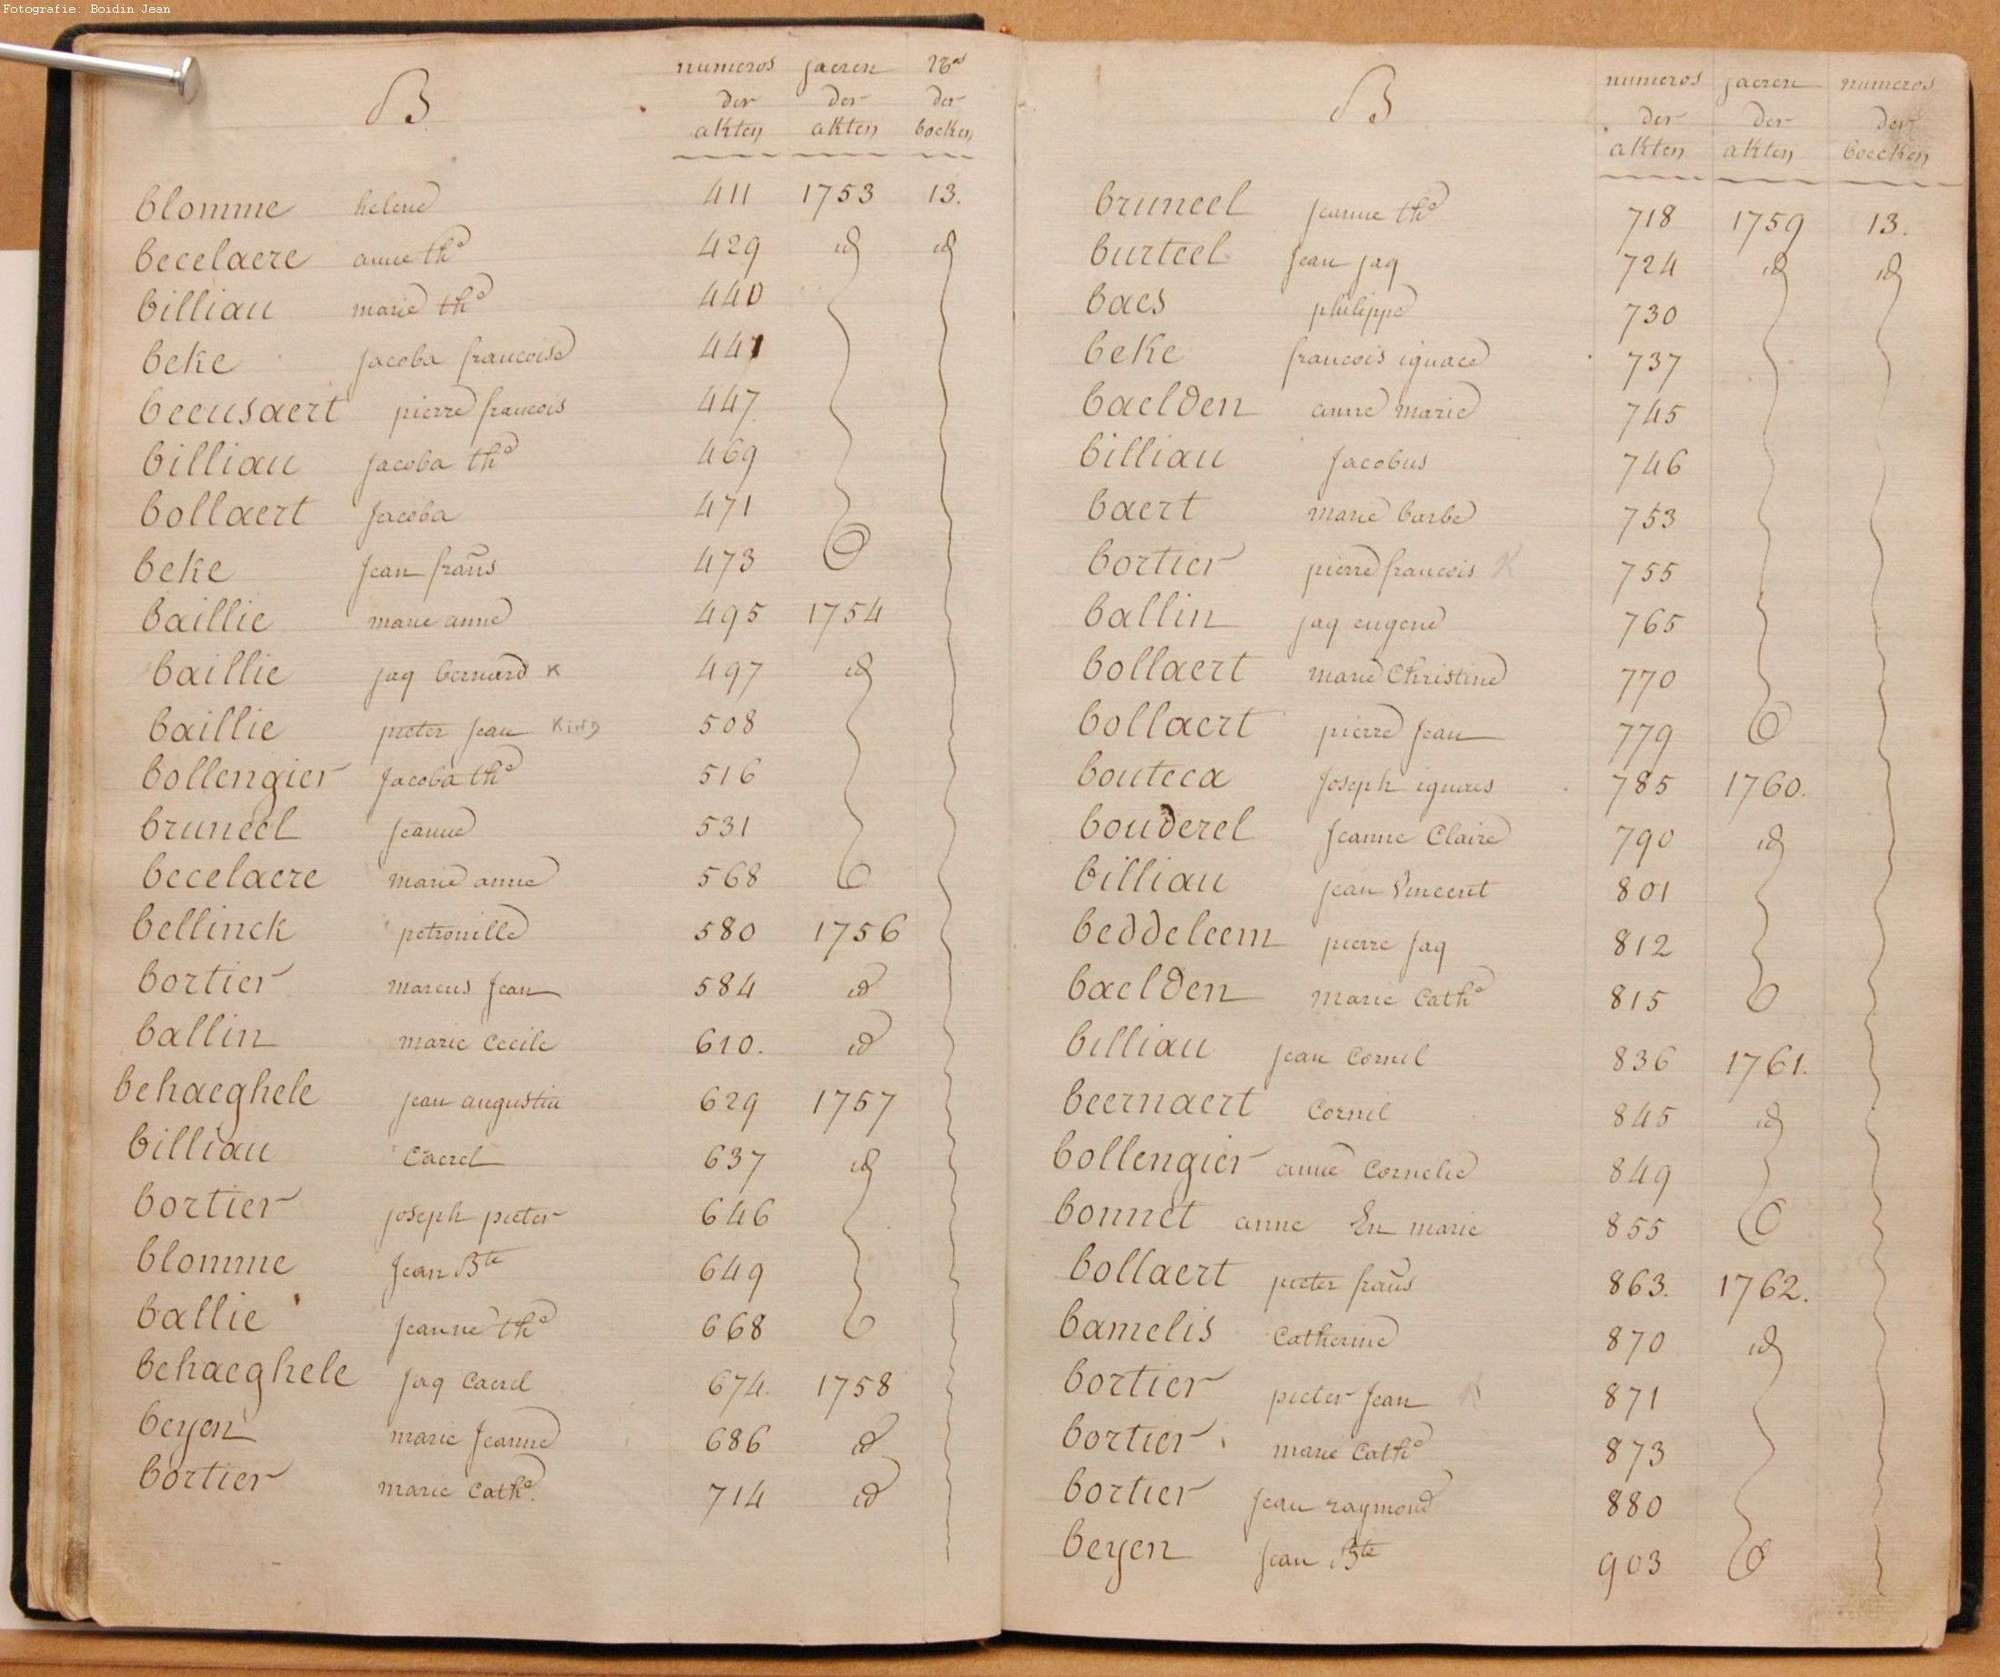 Fotografie: Boidin Jean
B
numeros jaeren Nos
der der der
akten akten boeken
blomme helene 411 1753 13.
becelaere anne the 429 id id
billiau marie the 440
beke jacoba francoise 441
beeusaert pierre francois 447
billiau jacoba the 469
bollaert jacoba 471
beke jean frans 473
baillie marie anne 495 1754
baillie jaq bernard K 497 id
baillie pieter jean Kind 508
bollengier jacoba the 516
bruneel jeanne 531
becelaere marie anne 568
bellinck petronille 580 1756
bortier marcus jean 584 id
ballin marie Cecile 610. id
behaeghele jean augustin 629 1757
billiau Caerel 637 id
bortier joseph pieter 646
blomme jean Bte 649
ballie jeanne the 668
behaeghele jaq Caerel 674. 1758
beyen marie jeanne 686 id
bortier marie Cathe. 714 id
B
numeros jaeren numeros
der der der
akten akten boecken
bruneel jeanne the 718 1759 13.
burteel jean jaq 724 id id
baes philippe 730
beke francois ignace 737
baelden anne marie 745
billiau jacobus 746
baert marie barbe 753
bortier pierre francois K 755
ballin jaq eugene 765
bollaert marie Christine 770
bollaert pierre jean 779
bouteca joseph ignaes 785 1760.
bouderel jeanne Claire 790 id
billiau jean Vincent 801
beddeleem pierre jaq 812
baelden marie Cathe 815
billiau jean Cornil 836 1761.
beernaert Cornil 845 id
bollengier anne Cornelie 849
bonnet anne En marie 855
bollaert pieter frans 863. 1762.
bamelis Catherine 870 id
bortier pieter jean K 871
bortier marie Cathe 873
bortier jean raymond 880
beyen jean Bte 903